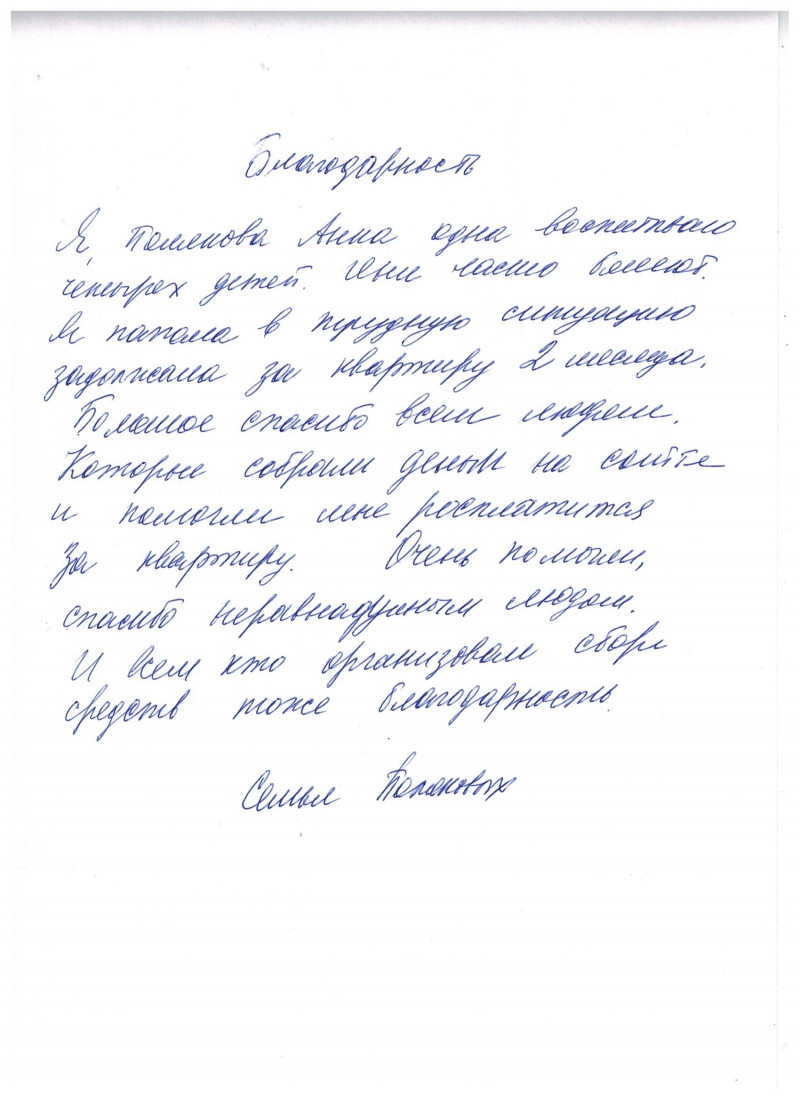 Благодарность
Я, Полякова Анна одна воспитываю
четырех детей. Они часто болеют.
Я попала в трудную ситуацию
задолжала за квартиру 2 месяца.
Большое спасибо всем людям.
Которые собрали деньги на сайте
и помогли мне росплатится
За квартиру. Очень помогли,
спасибо неравнадушным людям.
И всем кто организовал сборы
средств тоже благодарность.
Семья Поляковых